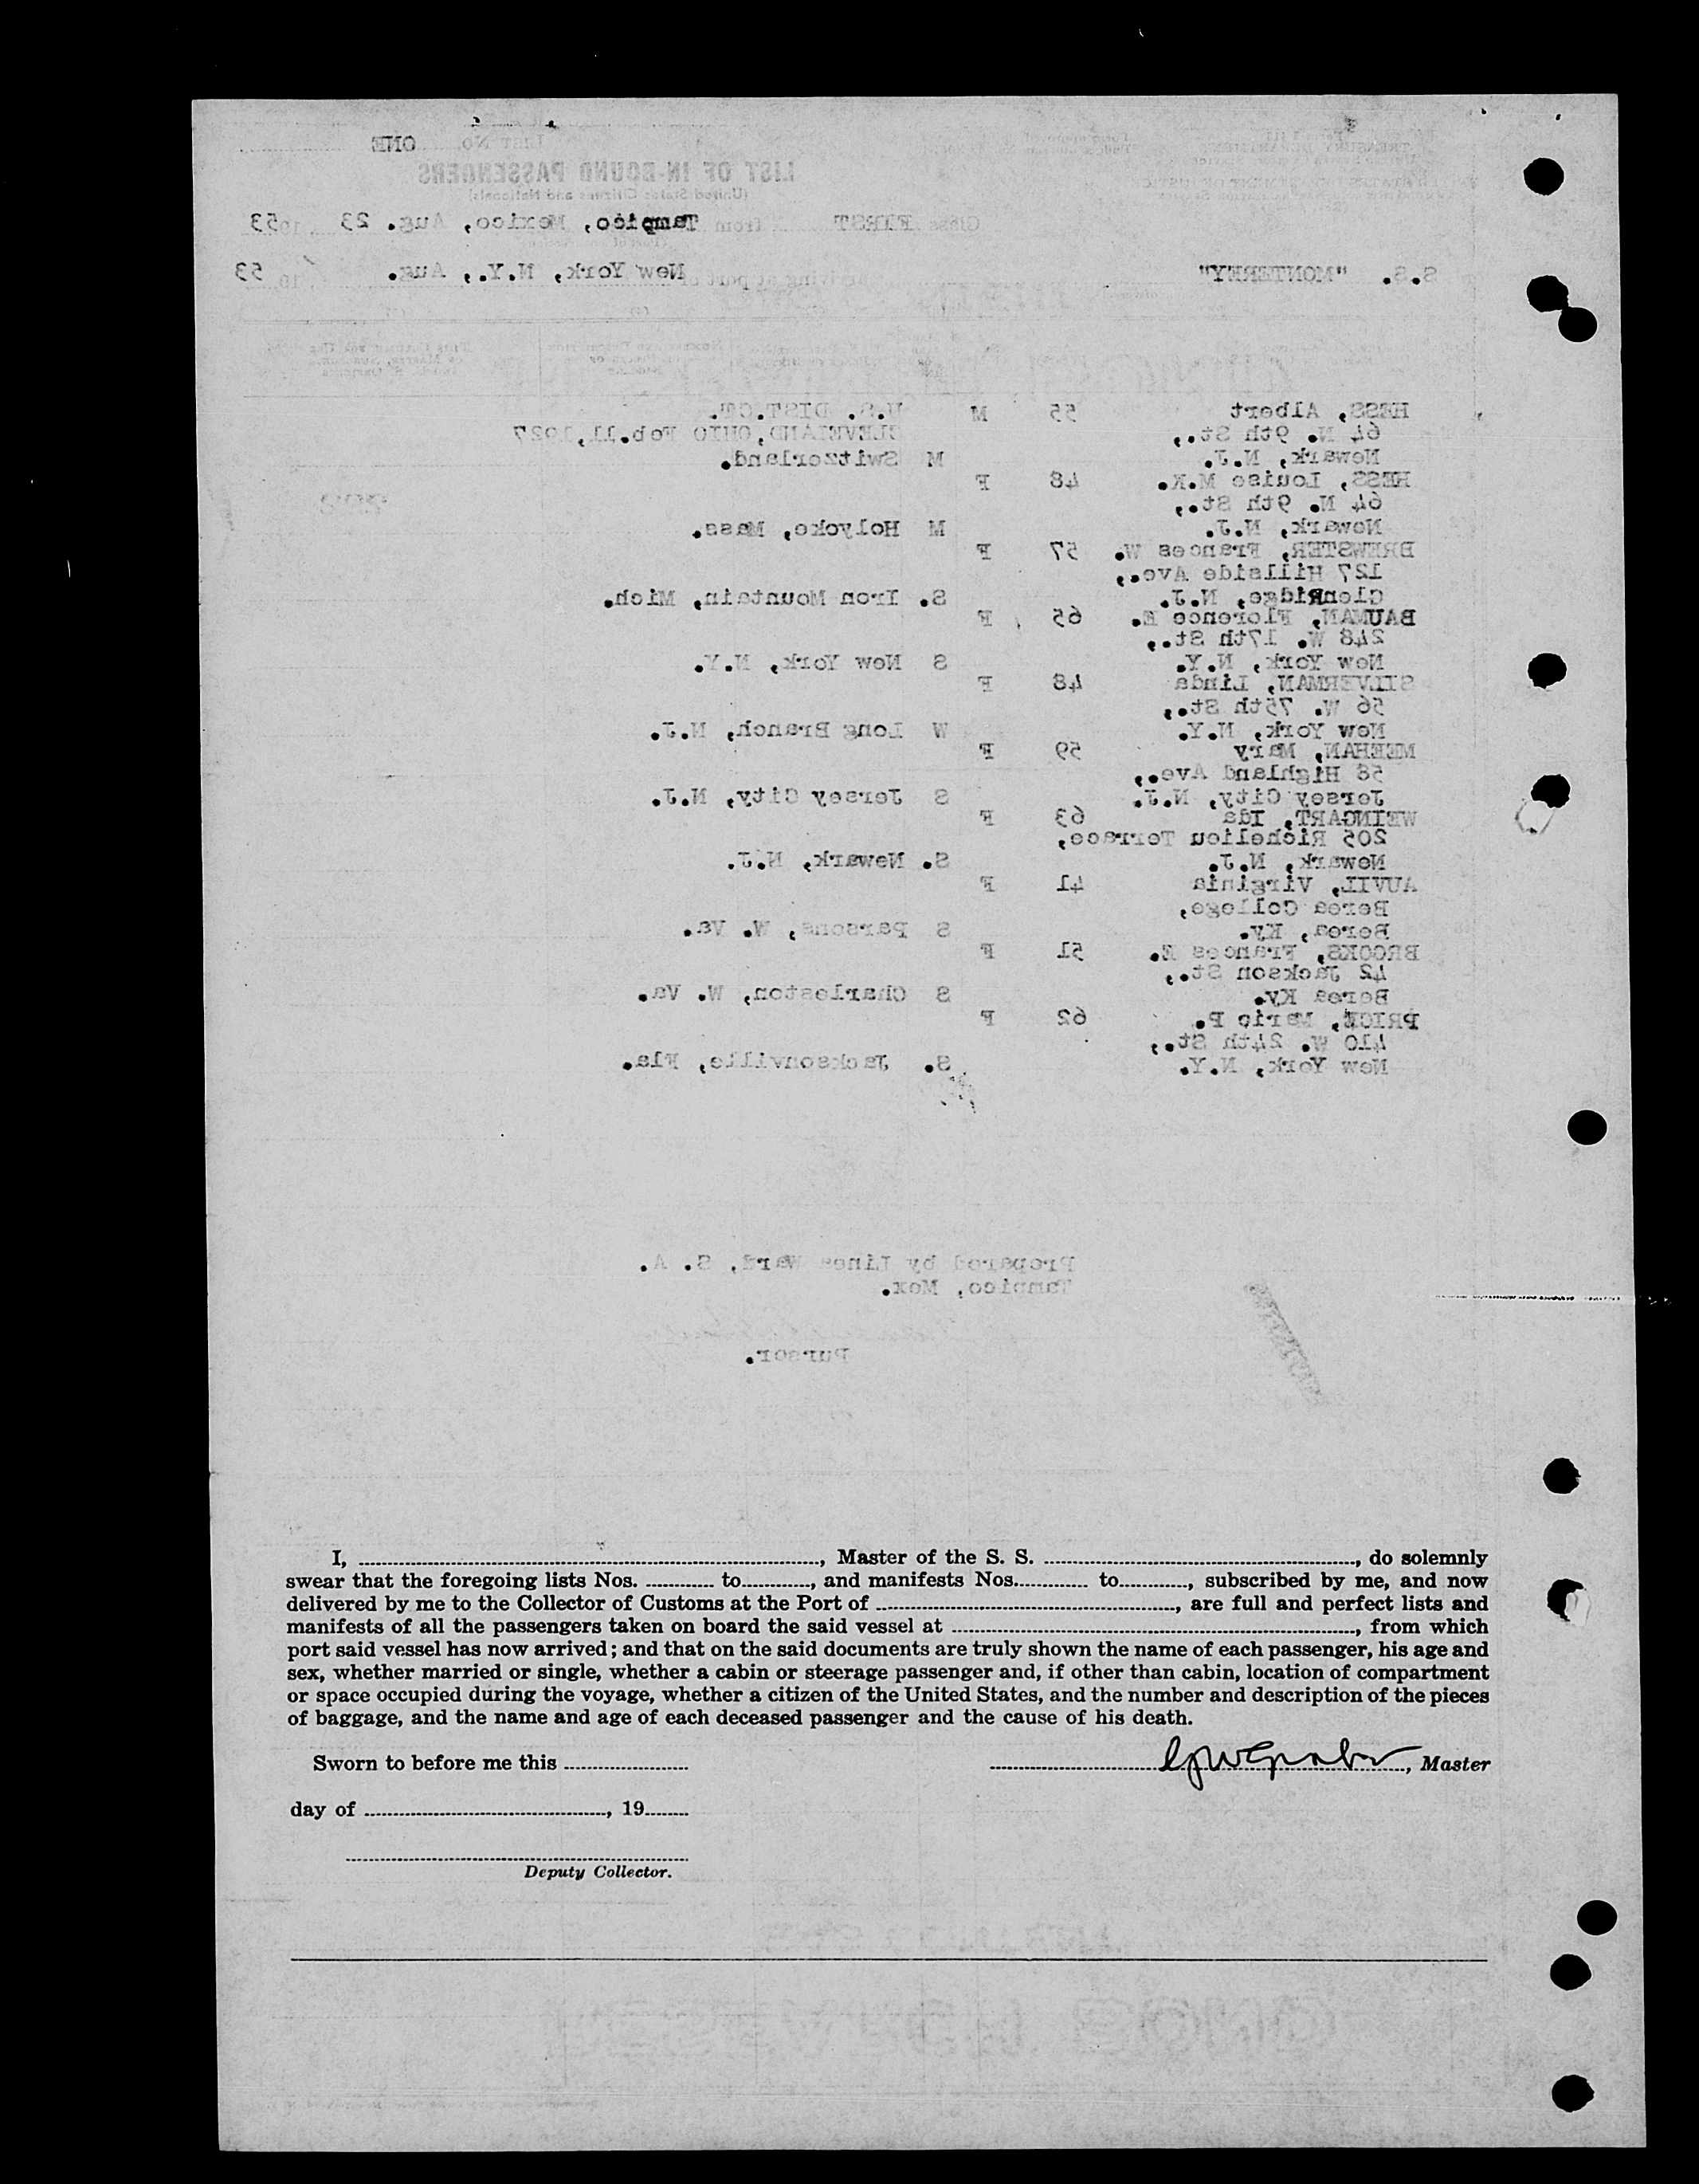 List No. ONE
LIST OF IN-BOUND PASSENGERS
(United States Citizens and Nationals)
Class FIRST from Tampico, Mexico, Aug. 23, 1953
S.S. "MONTEREY" arriving at port of New York, N.Y., Aug. 1953
HESS, Albert 55 M U.S. DIST.CT.
64 N. 9th St., CLEVELAND, OHIO Feb.11,1927
Newark, N.J. M Switzerland.
HESS, Louise M.K. 48 F
64 N. 9th St.,
Newark, N.J. M Holyoke, Mass.
BREWSTER, Frances W. 57 F
127 Hillside Ave.,
GlenRidge, N.J. S. Iron Mountain, Mich.
BAUMAN, Florence E. 65 F
248 W. 17th St.,
New York, N.Y. S New York, N.Y.
SILVERMAN, Linda 48 F
56 W. 75th St.,
New York, N.Y. W Long Branch, N.J.
MEEHAN, Mary 59 F
58 Highland Ave.,
Jersey City, N.J. S Jersey City, N.J.
WEINGART, Ida 63 F
205 Richelieu Terrace,
Newark, N.J. S. Newark, N.J.
AUVIL, Virginia 41 F
Berea College,
Berea, Ky. S Parsons, W. Va.
BROOKS, Frances E. 51 F
42 Jackson St.,
Berea Ky. S Charleston, W. Va.
PRICE, Marie P. 62 F
410 W. 24th St.,
New York, N.Y. S. Jacksonville, Fla.
Prepared by Lines Ward, S. A.
Tampico, Mex.
Purser.
I, ..., Master of the S. S. ..., do solemnly
swear that the foregoing lists Nos. ... to ..., and manifests Nos. ... to ..., subscribed by me, and now
delivered by me to the Collector of Customs at the Port of ..., are full and perfect lists and
manifests of all the passengers taken on board the said vessel at ..., from which
port said vessel has now arrived; and that on the said documents are truly shown the name of each passenger, his age and
sex, whether married or single, whether a cabin or steerage passenger and, if other than cabin, location of compartment
or space occupied during the voyage, whether a citizen of the United States, and the number and description of the pieces
of baggage, and the name and age of each deceased passenger and the cause of his death.
Sworn to before me this ... , Master
day of ..., 19...
Deputy Collector.